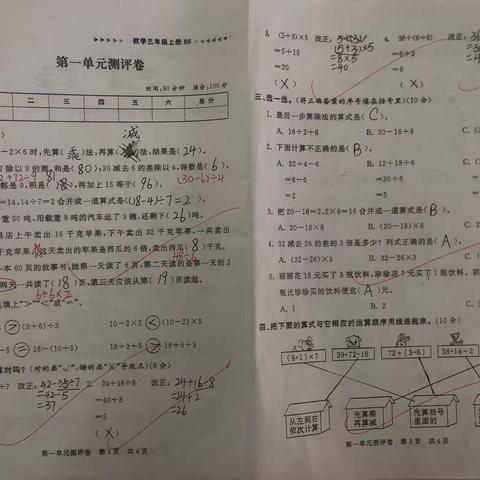 数学三年级上册 BS
第一单元测评卷
时间:90分钟 满分:100分
二 三 四 五 六 总分
减
-2×6时,先算(乘)法,再算( )法,结果是(24)。
2除以9的 和是(80);30减去6的差除以4,得数是(6)。
72÷9 81 (30-6)÷4
都是9,积是( ),再加上15等于(96)。
=14,14÷7=2合并成一道算式是((18-4)÷7=2)。
重50吨,用载重8吨的汽车运了3趟,还剩下(26)吨。
果店上午卖出16千克苹果,下午卖出32千克苹果,一共卖出
千克苹果,这天卖出的苹果是西瓜的6倍,卖出西瓜(8)千克。
48÷6
一本60页的故事书,她第一天读了6页,第二天读的是第一天的2
两天一共读了(18)页,第三天应该从第(19)页读起。
6+6×2
填上“>”“<”或“=”。
(>)(3+6)÷3 10-2×5(<)(10-2)×5
-5(=)16-(10+5) 18÷6÷3(<)18÷6+3
对吗?(对的画“√”,错的画“×”并改正)(8分)
÷7 改正:42-35÷7 2. 24+16÷8 改正:24+16÷8
=42-5 =40÷8 =24+2
=37 =5 =26
(×)
第一单元测评卷 第1页 共4页
3. (5+3)×5 改正: 4. 36÷(6+3) 改正:36
(5+3)×5
=5+15 =8×5 =6+3
=20 =40 =9
(×) (×)
三、选一选。(将正确答案的序号填在括号里)(10分)
1. 最后一步算除法的算式是(C)。
A. 16÷2+8 B. 20-16÷8 C.
2. 下面计算不正确的是(B)。
A. 32÷4-6 B. 12+18÷6 C.
=8-6 =30÷6
=2 =5
3. 把20-18=2,2×8=16合并成一道算式是(B)。
A. 20-18×8 B. (20-18)×8 C.
4. 32减去26的差的3倍是多少?列式正确的是(A)。
A. (32-26)×3 B. 32-26×3 C.
5. 丽丽花18元买了3瓶饮料,珍珍花7元买了1瓶饮料。丽
瓶比珍珍买的饮料便宜(A)元。
A. 1 B. 2 C.
四、把下面的算式与它相应的运算顺序用线连起来。(10分)
(8+1)×7 39+72-18 72÷(3+6) 38+14÷2
从左到右
依次计算
先算乘
再算减
先算括号
里面的
第一单元测评卷 第2页 共4页